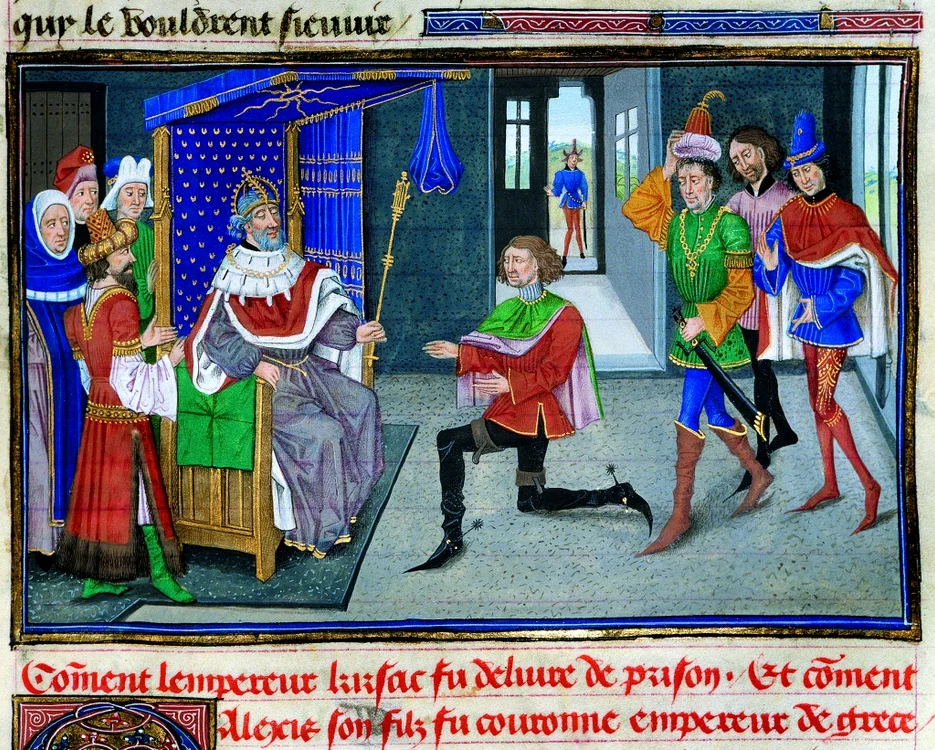 quy le vouldrent sieuuir
Com̃ent lempereur kirsac fu deliure de prison. Et com̃ent
Alexis son filz fu couronne empereur de grece